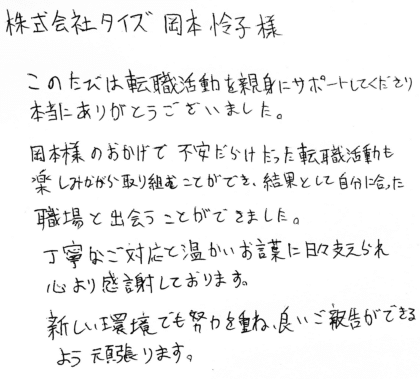 株式会社タイズ 岡本怜子様
このたびは転職活動を親身にサポートしてくださり
本当にありがとうございました。
岡本様のおかげで不安だらけだった転職活動も
楽しみながら取り組むことができ、結果として自分に合った
職場と出会うことができました。
丁寧なご対応と温かいお言葉に日々支えられ
心より感謝しております。
新しい環境でも努力を重ね、良いご報告ができる
よう頑張ります。